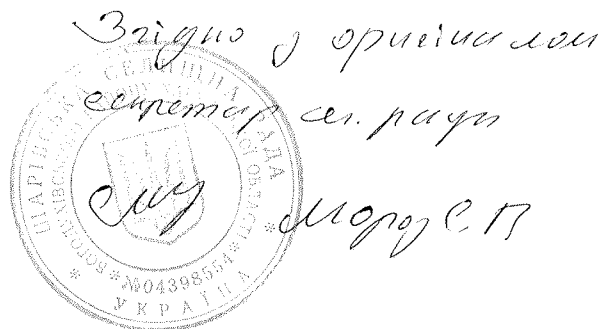 Згідно з оригіналом
секретар сел. ради
Мороз С.П
ШАРІВСЬКА СЕЛИЩНА РАДА
БОГОДУХІВСЬКОГО РАЙОНУ ХАРКІВСЬКОЇ ОБЛАСТІ
* №04398554 *
* УКРАЇНА *